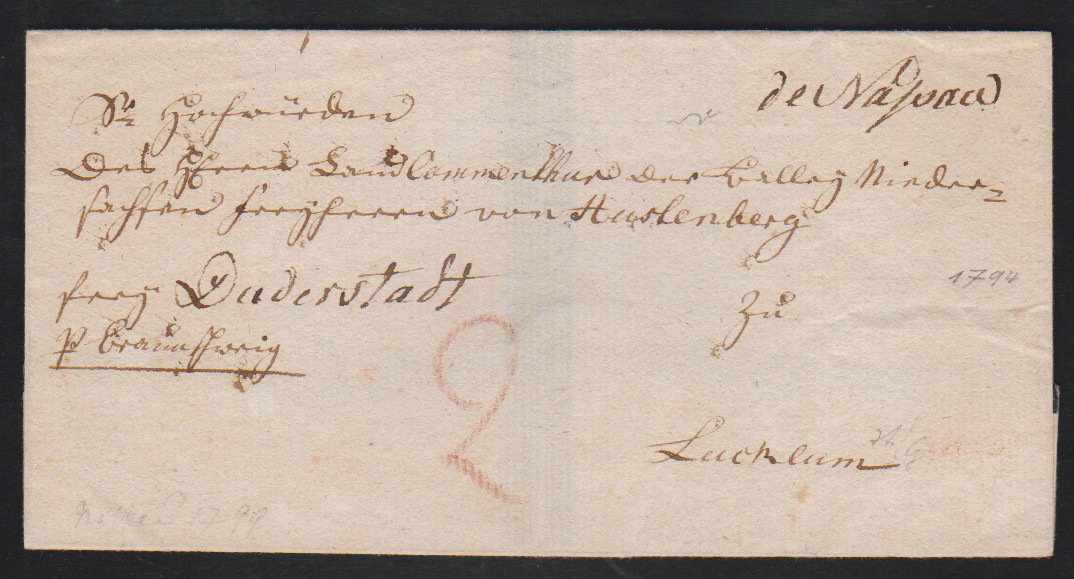 de Nassau
Sr Hochwürden
Des Herrn Land Commenthur der Balley Nieder=
sachsen Freyherrn von Hustenberg
frey Duderstadt
p Braunschweig
Zu
1794
2
Lucklum
1794